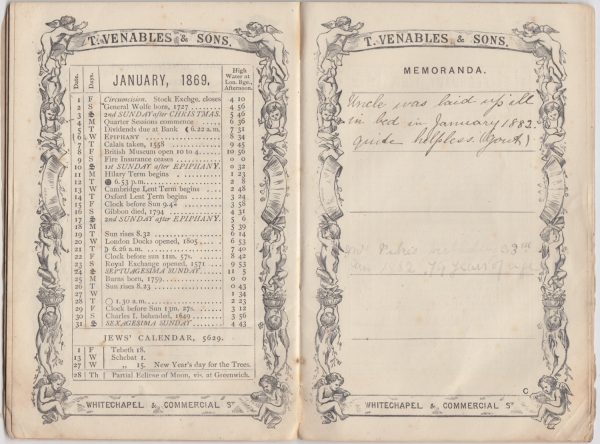 T. VENABLES & SONS.
Date. Days. JANUARY, 1869. High Water at Lon. Bge., Afternoon.
1 F Circumcision. Stock Exchge. closes 4 10
2 S General Wolfe born, 1727 4 56
3 S 2nd SUNDAY after CHRISTMAS. 5 46
4 M Quarter Sessions commence 6 36
5 T Dividends due at Bank ☾ 6.22 a.m. 7 31
6 W EPIPHANY 8 34
7 T Calais taken, 1558 9 45
8 F British Museum open 10 to 4. 10 56
9 S Fire Insurance ceases 0 0
10 S 1st SUNDAY after EPIPHANY. 0 32
11 M Hilary Term begins 1 23
12 T ● 6.53 p.m. 2 8
13 W Cambridge Lent Term begins 2 48
14 T Oxford Lent Term begins 3 24
15 F Clock before Sun 9.42 3 58
16 S Gibbon died, 1794 4 31
17 S 2nd SUNDAY after EPIPHANY. 5 6
18 M 5 39
19 T Sun rises 8.32 6 14
20 W London Docks opened, 1805 6 53
21 T ☽ 6.26 a.m. 7 40
22 F Clock before sun 11m. 57s. 8 42
23 S Royal Exchange opened, 1571 10 0
24 S SEPTUAGESIMA SUNDAY 11 5
25 M Burns born, 1759 0 0
26 T Sun rises 8.23 0 43
27 W 1 34
28 T ○ 1.30 a.m. 2 23
29 F Clock before Sun 13m. 27s. 3 12
30 S Charles I. beheaded, 1649 3 56
31 S SEXAGESIMA SUNDAY 4 43
JEWS' CALENDAR, 5629.
1 F Tebeth 18.
13 W Schebat 1.
27 W „ 15. New Year's day for the Trees.
28 Th Partial Eclipse of Moon, vis. at Greenwich.
WHITECHAPEL & COMMERCIAL ST
T. VENABLES & SONS.
MEMORANDA.
Uncle was laid up ill
in bed in January 1882.
quite helpless. (Gout)
74 years of age
WHITECHAPEL & COMMERCIAL ST